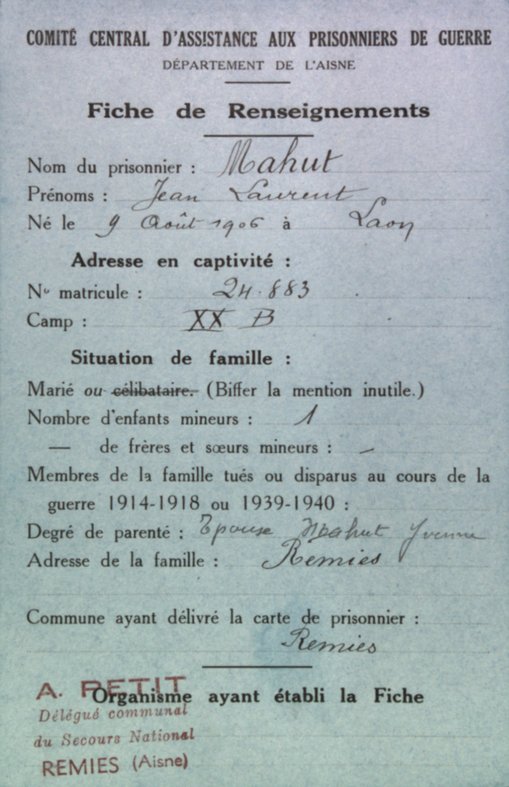 COMITÉ CENTRAL D'ASSISTANCE AUX PRISONNIERS DE GUERRE
DÉPARTEMENT DE L'AISNE
Fiche de Renseignements
Nom du prisonnier : Mahut
Prénoms : Jean Laurent
Né le 9 Août 1906 à Laon
Adresse en captivité :
No matricule : 24.883
Camp : XX B
Situation de famille :
Marié ou célibataire. (Biffer la mention inutile.)
Nombre d'enfants mineurs : 1
— de frères et sœurs mineurs : -
Membres de la famille tués ou disparus au cours de la
guerre 1914-1918 ou 1939-1940 :
Degré de parenté : Epouse Mahut Yvonne
Adresse de la famille : Remies
Commune ayant délivré la carte de prisonnier :
Remies
Organisme ayant établi la Fiche
A. PETIT
Délégué communal
du Secours National
REMIES (Aisne)